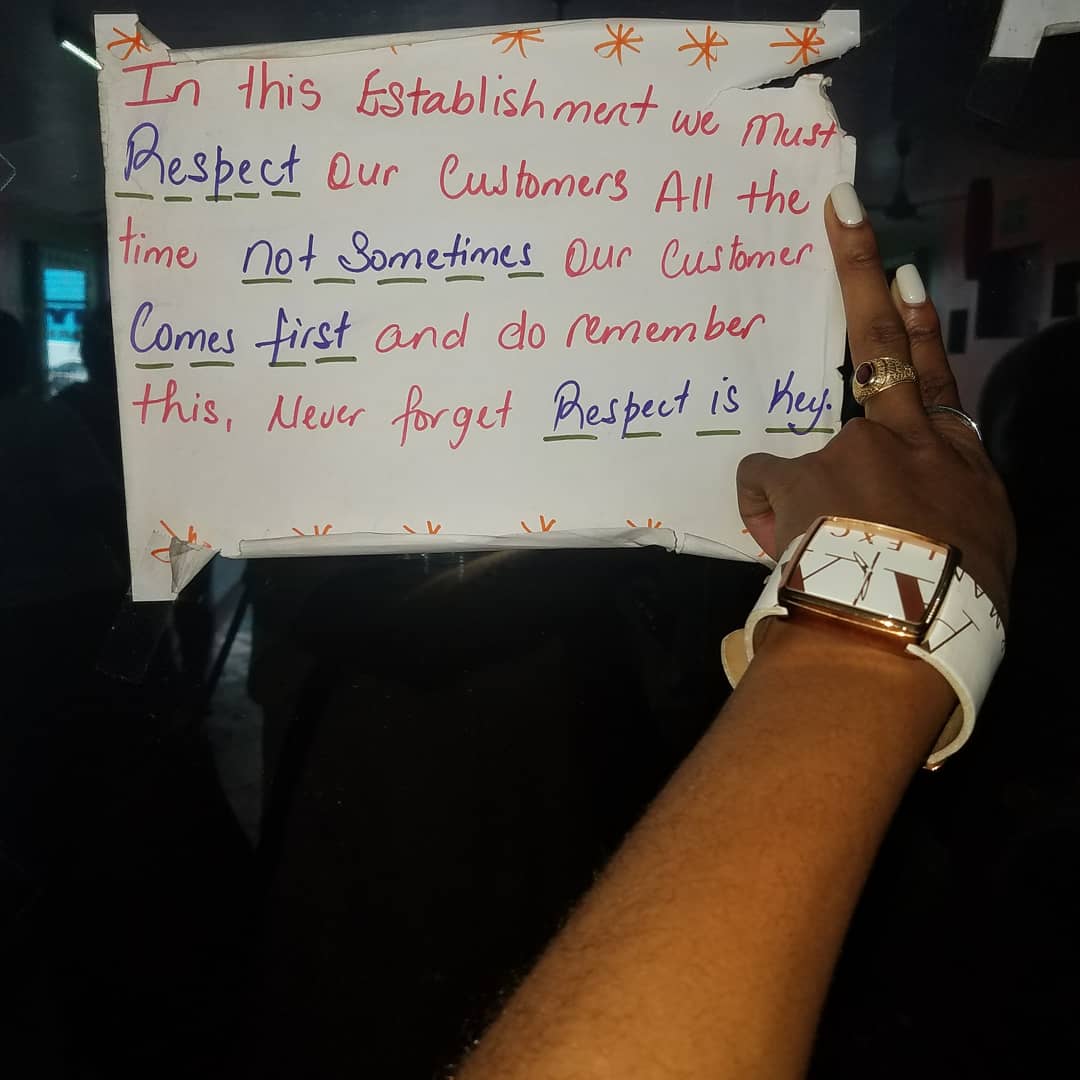 In this Establishment we Must
Respect Our Customers All the
time not Sometimes Our Customer
Comes first and do remember
this, Never forget Respect is Key.